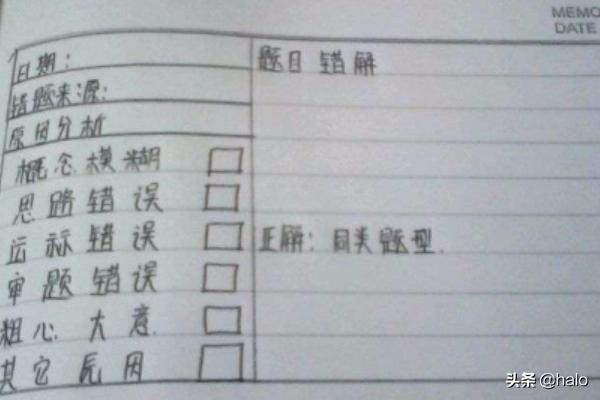 MEMO
DATE
日期:
题目 错解
错题来源:
原因分析
概念模糊
思路错误
正解: 同类题型.
审题错误
粗心大意
其它原因
头条 @halo